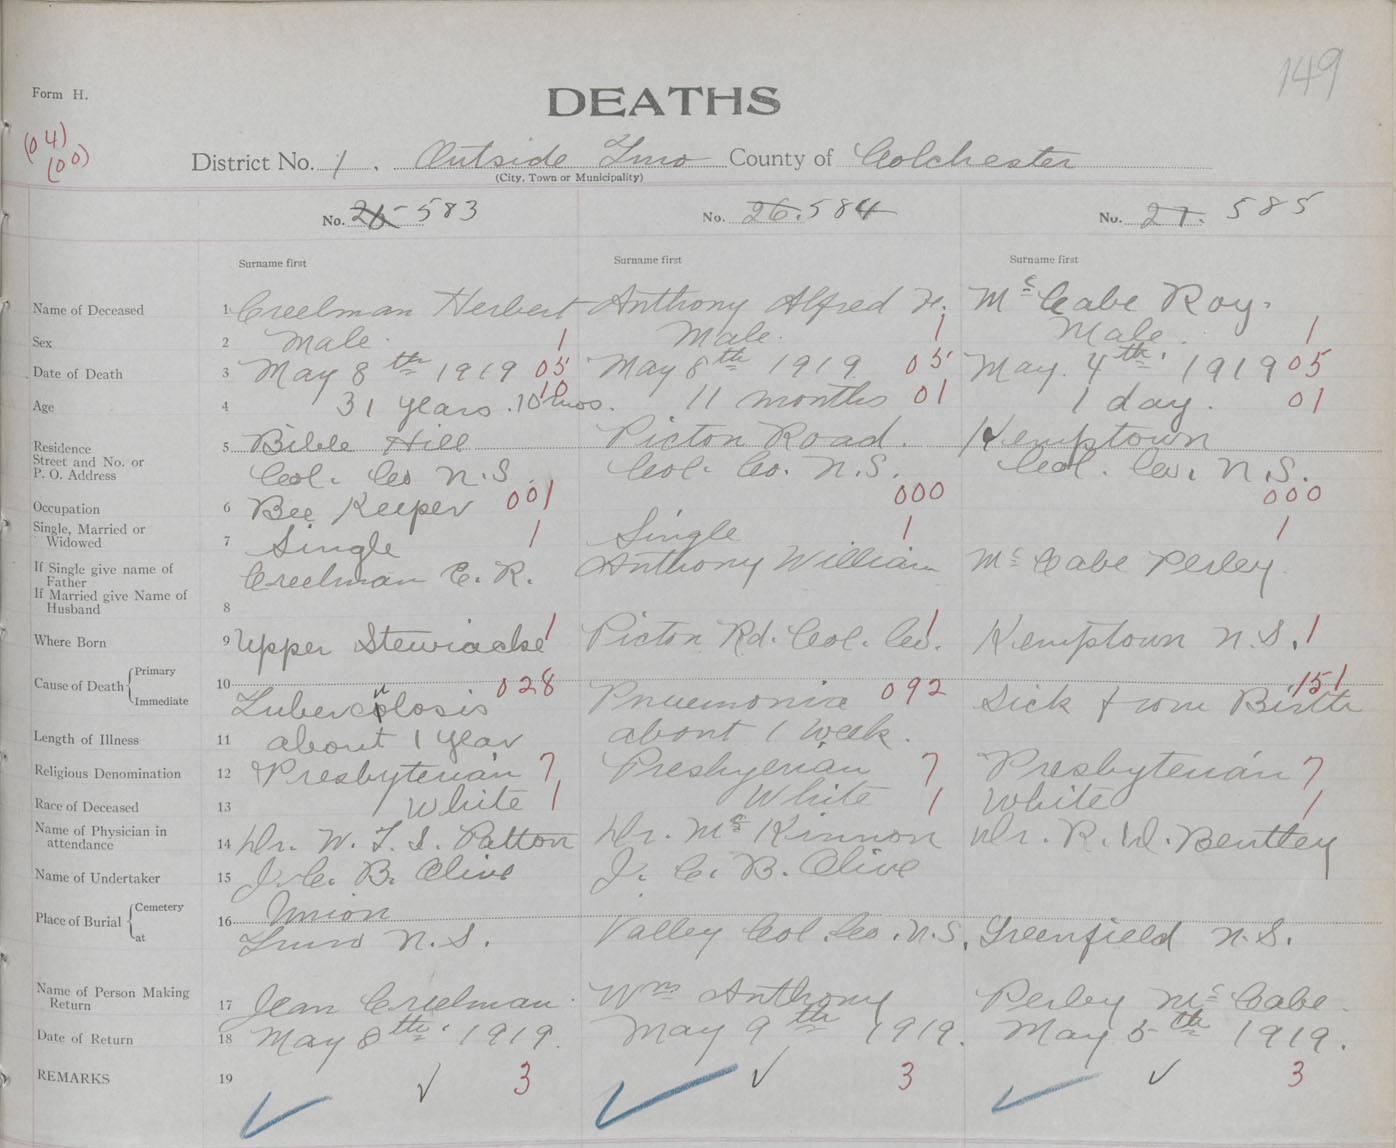 149
Form H.
DEATHS
(04)
(00)
District No. 1. Outside Truro County of Colchester
(City, Town or Municipality)
No. 25 583 No. 26. 584 No. 27. 585
Surname first Surname first Surname first
Name of Deceased 1 Creelman Herbert Anthony Alfred W. McCabe Roy.
Sex 2 Male 1 Male. 1 Male. 1
Date of Death 3 May 8th 1919 05 May 8th 1919 05 May. 4th. 1919 05
Age 4 31 years. 10 mos. 10 11 months 01 1 day. 01
Residence 5 Bible Hill Picton Road. Kemptown
Street and No. or
P. O. Address Col. Co N.S. Col. Co. N.S. Col. Co. N.S.
Occupation 6 Bee Keeper 001 000 000
Single, Married or
Widowed 7 Single 1 Single 1 1
If Single give name of
Father Creelman E. R. Anthony William McCabe Perley.
If Married give Name of
Husband 8
Where Born 9 Upper Stewiacke 1 Picton Rd. Col. Co. 1 Kemptown N.S. 1
Cause of Death Primary 10
Immediate Tuberculosis 028 Pneumonia 092 Sick from Birth 151
Length of Illness 11 about 1 year about 1 week.
Religious Denomination 12 Presbyterian 7 Presbyerian 7 Presbyterian 7
Race of Deceased 13 White 1 White 1 White 1
Name of Physician in
attendance 14 Dr. W. F. S. Patton Dr. McKinnon Dr. R. D. Bentley
Name of Undertaker 15 J. C. B. Olive J. C. B. Olive
Place of Burial Cemetery 16 Union
at Truro N.S. Valley Col. Co. N.S. Greenfield N.S.
Name of Person Making
Return 17 Jean Creelman. Wm Anthony Perley McCabe.
Date of Return 18 May 8th. 1919. May 9th 1919. May 5th 1919.
REMARKS 19 3 3 3